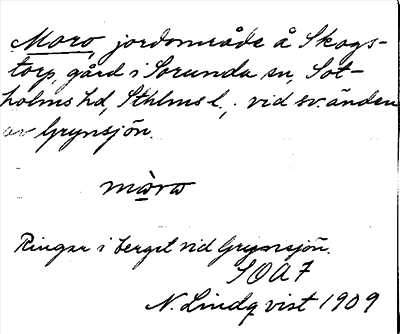 Moro, jordområde å Skogs-
torp, gård i Sorunda sn, Sot-
holms hd, Sthlms l., vid sv. änden
av Grynsjön.
mòro
Ringar i berget vid Grynsjön.
SOA 7
N. Lindqvist 1909